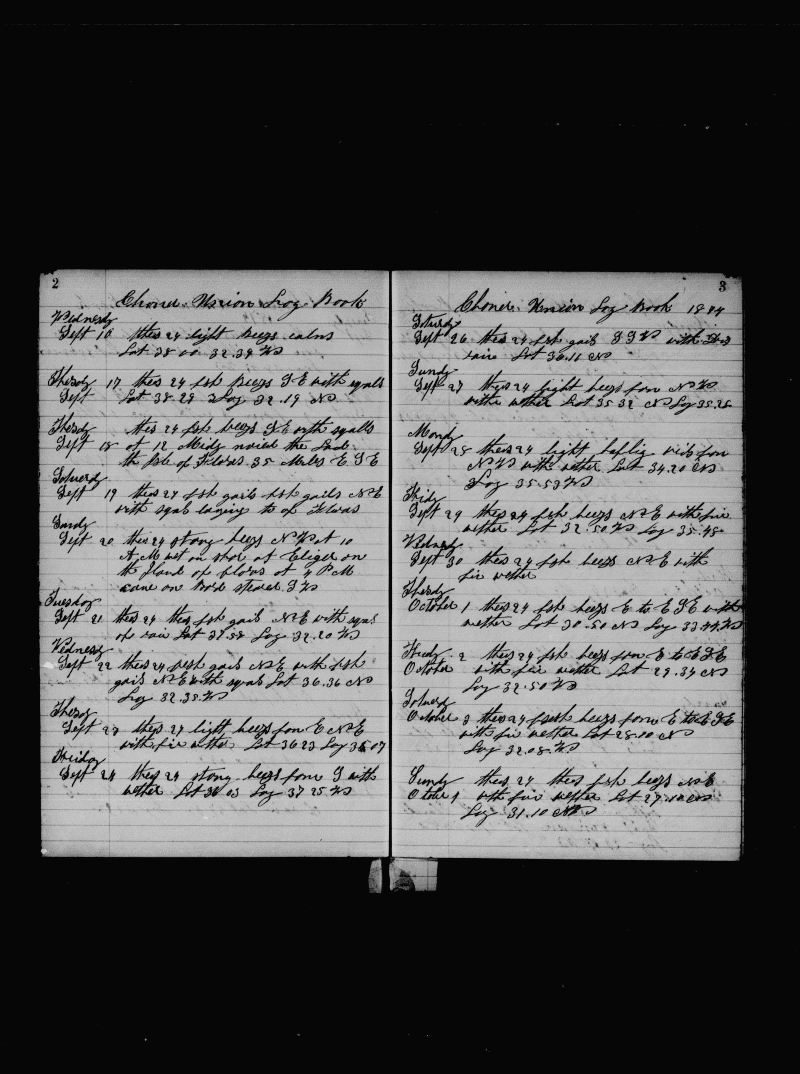 2
Choner Union Log Book
Wednesdy
Sept 16 theis 24 light beegs calms
Lat 38 00 32.39 W
Thersdy 17 theis 24 fsh beegs S E with sqals
Sept Lat 38.29 Log 32.19
Thersdy theis 24 fsh beegs S E with sqalls
Sept 18 at 12 Midy the Land
the Isle of Flores 35 Miles E S E
Soturdy
Sept 19 theis 24 fsh gails fsh gails N E
with sqals laying to of Floras
Sundy
Sept 20 theis 24 strong beegs N W At 10
A M wet on shor at on
the Iland of flores at 4 P M
came on bord S W
Tuesday
Sept 21 theis 24 theis fsh gails N E with sqals
of rain Lat 37.58 Log 32.20 W
Wednessy
Sept 22 theis 24 fresh gails N E with fsh
gails N E with sqals Lat 36.36 N
Log 32.35 W
Thersdy
Sept 23 theis 24 light beegs from E N E
with fir wether Lat 36 23 Log 36 07
Friday
Sept 24 theis 24 strong beegs from S with
wether Lat 36 03 Log 37 25 W
3
Choner Union Log Book 18
Soturdy
Sept 26 theis 24 fsh gails S S W with
rain Lat 36.11 N
Sundy
Sept 27 theis 24 light beegs from N W
with wether Lat 35 32 N Log 35.25
Mondy
Sept 28 theis 24 light from
N W with wether Lat 34.20 N
Log 35.53 W
Sept 29 theis 24 fsh beegs N E with fir
wether Lat 32.50 Log 35.45
Wednesdy
Sept 30 theis 24 fsh beegs N E with
fir wether
Thersdy
October 1 theis 24 fsh beegs E to E S E with
wether Lat 30.50 N Log 33.44 W
Fridy 2 theis 24 fsh beegs from E to E S E
October with fir wether Lat 29.34 N
Log 32.50 W
Soturdy
October 3 theis 24 fresh beegs from E to E S E
with fir wether Lat 28.10 N
Log 32.08 W
Sundy theis 24 theis fsh beegs N E
October 4 with fir wether Lat 27.10 N
Log 31.10